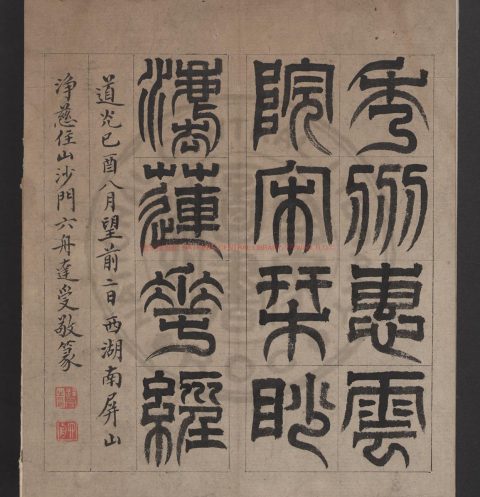 秀州惠雲
院宋栞眇
灋蓮華經
道光己酉八月望前二日西湖南屏山
淨慈住山沙門六舟達受敬篆